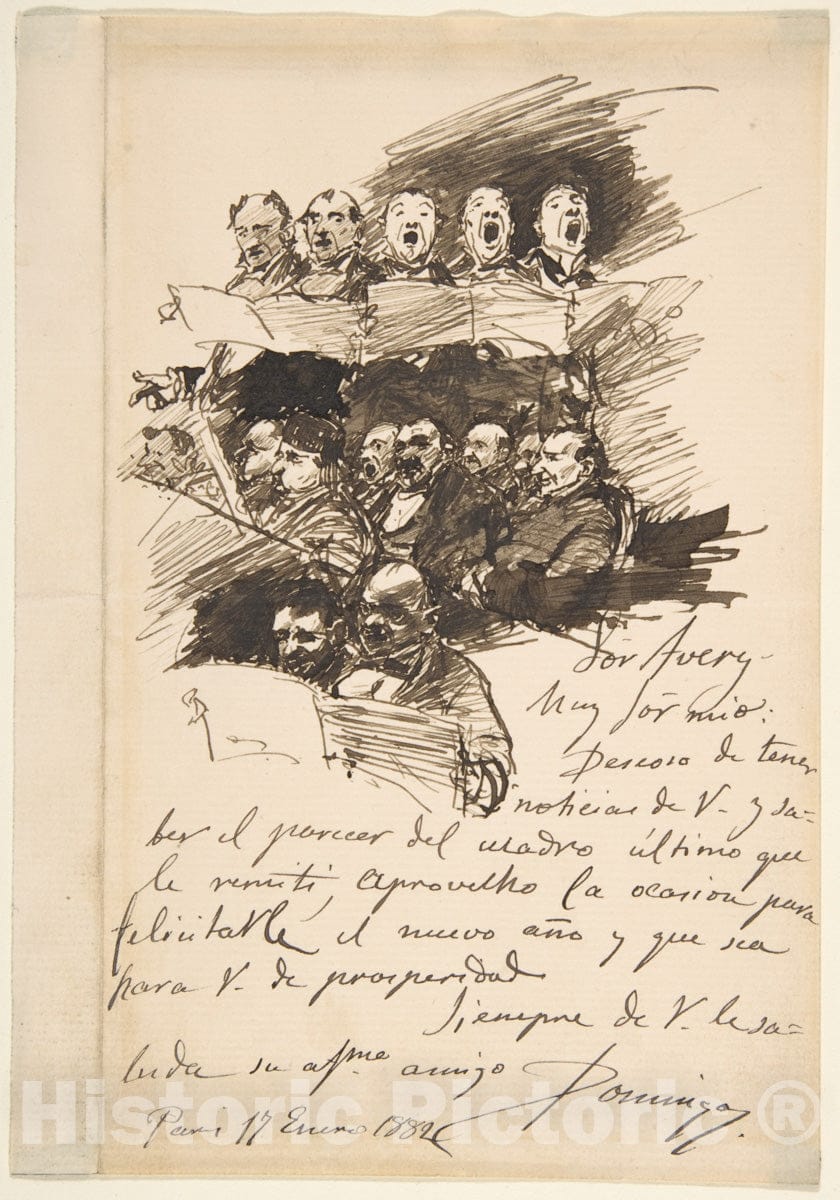 Sor Avery
Muy Sor mio:
Deseoso de tener
noticias de V. y sa-
ber el parecer del cuadro último que
le remiti, aprovecho la ocasion para
felicitarle el nuevo año y que sea
para V. de prosperidad
Siempre de V. le sa-
luda su afmo amigo Domingo
Paris 17 Enero 1882
Historic Pictoric ®